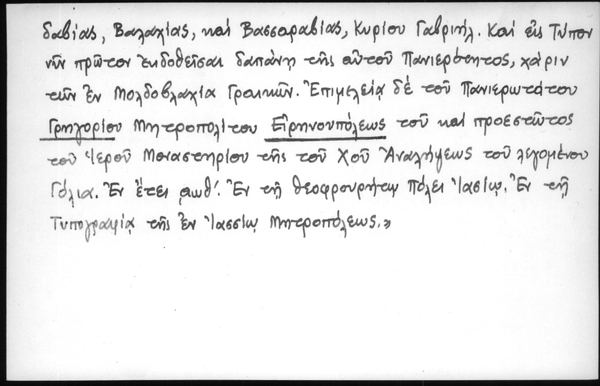 δαβίας, Βαλαχίας, καὶ Βασσαραβίας, Κυρίου Γαβριήλ. Καὶ εἰς Τύπον
νῦν πρῶτον ἐκδοθεῖσαι δαπάνῃ τῆς αὐτοῦ Πανιερότητος, χάριν
τῶν ἐν Μολδοβλαχίᾳ Γραικῶν. Ἐπιμελείᾳ δὲ τοῦ Πανιερωτάτου
Γρηγορίου Μητροπολίτου Εἰρηνουπόλεως τοῦ καὶ προεστῶτος
τοῦ Ἱεροῦ Μοναστηρίου τῆς τοῦ Χοῦ Ἀναλήψεως τοῦ λεγομένου
Γόλια. Ἐν ἔτει ͵αωθʹ. Ἐν τῇ θεοφρουρήτῳ πόλει Ἰασίῳ. Ἐν τῇ
Τυπογραφίᾳ τῆς ἐν Ἰασσίῳ Μητροπόλεως.»